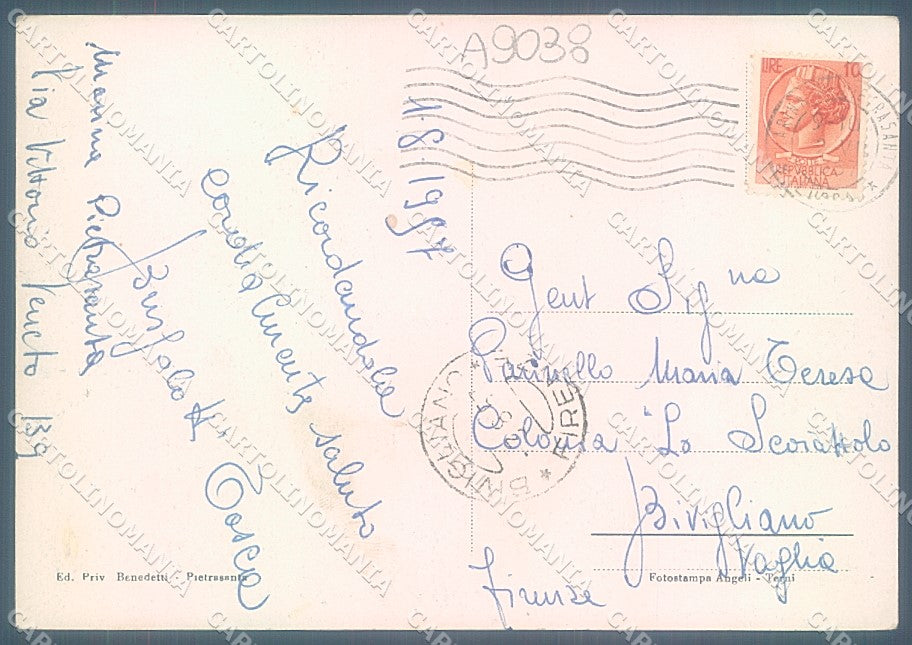 A9038
11-8-1957
Ricordandola
cordialmente saluto
Tosca
Marina Pietrasanta
Via Vittorio Veneto 139
LIRE 10
POSTE
REPUBBLICA
ITALIANA
Gent Sig na
Maria Teresa
Colonia "Lo Scoiattolo
Bivigliano
Vaglia
Firenze
BIVIGLIANO * FIRENZE
Ed. Priv Benedetti - Pietrasanta
Fotostampa Angeli - Terni
CARTOLINOMANIA